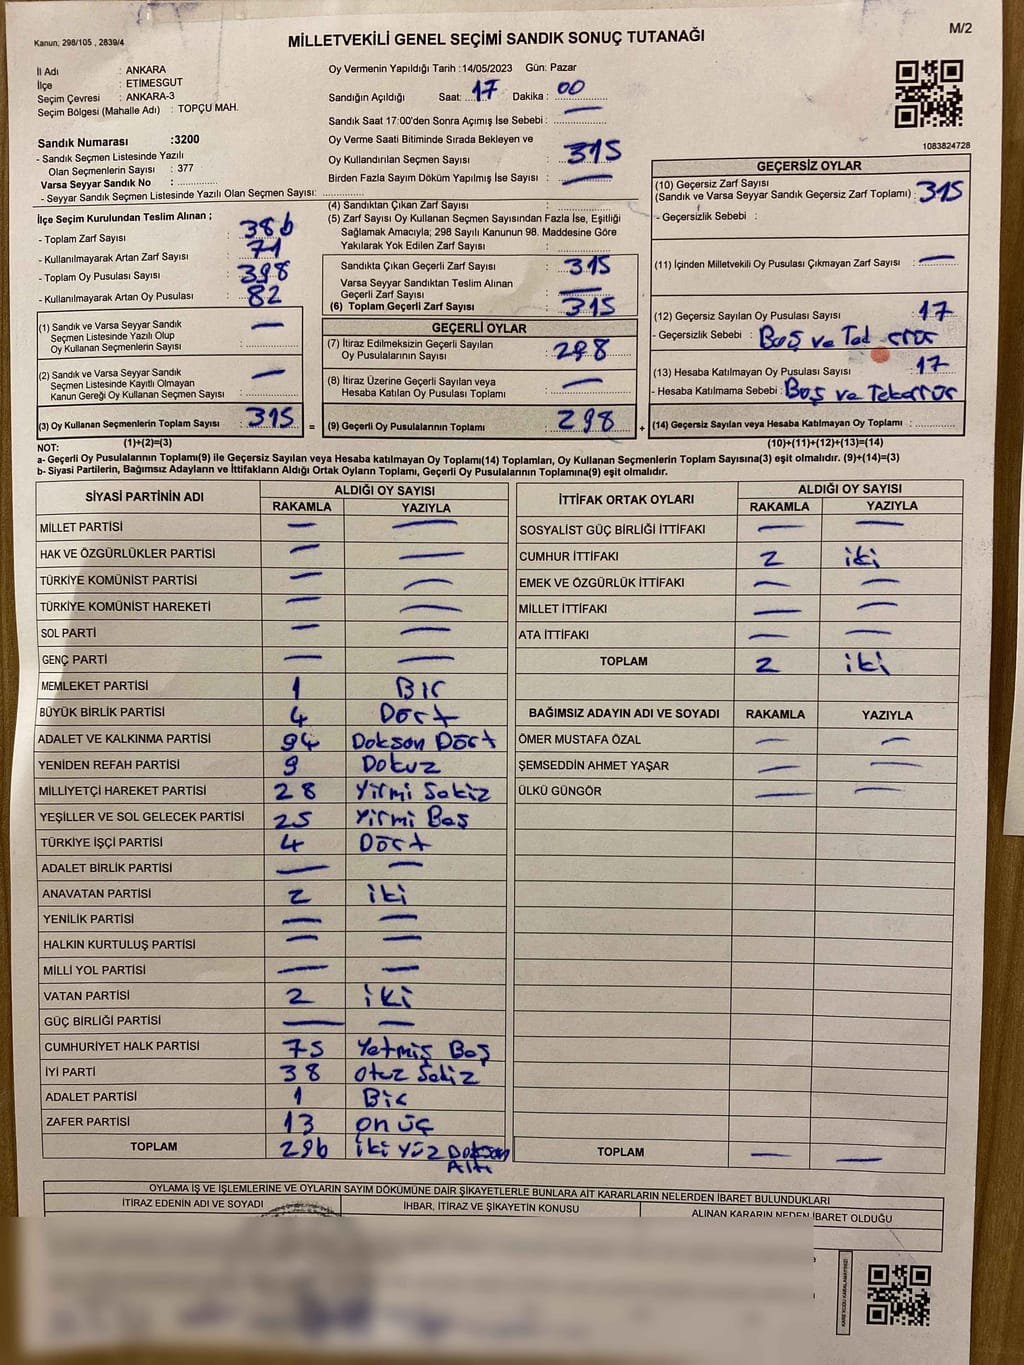 Kanun, 298/105 , 2839/4
M/2
MİLLETVEKİLİ GENEL SEÇİMİ SANDIK SONUÇ TUTANAĞI
İl Adı : ANKARA
İlçe : ETİMESGUT
Seçim Çevresi : ANKARA-3
Seçim Bölgesi (Mahalle Adı) : TOPÇU MAH.
Sandık Numarası :3200
- Sandık Seçmen Listesinde Yazılı
Olan Seçmenlerin Sayısı : 377
Varsa Seyyar Sandık No :
- Seyyar Sandık Seçmen Listesinde Yazılı Olan Seçmen Sayısı:
Oy Vermenin Yapıldığı Tarih :14/05/2023 Gün: Pazar
Sandığın Açıldığı Saat: 17 Dakika : 00
Sandık Saat 17:00'den Sonra Açımış İse Sebebi : —
Oy Verme Saati Bitiminde Sırada Bekleyen ve
Oy Kullandırılan Seçmen Sayısı : 315
Birden Fazla Sayım Döküm Yapılmış İse Sayısı : —
1083824728
İlçe Seçim Kurulundan Teslim Alınan ;
- Toplam Zarf Sayısı : 386
- Kullanılmayarak Artan Zarf Sayısı : 71
- Toplam Oy Pusulası Sayısı : 398
- Kullanılmayarak Artan Oy Pusulası : 82
(1) Sandık ve Varsa Seyyar Sandık
Seçmen Listesinde Yazılı Olup
Oy Kullanan Seçmenlerin Sayısı : —
(2) Sandık ve Varsa Seyyar Sandık
Seçmen Listesinde Kayıtlı Olmayan
Kanun Gereği Oy Kullanan Seçmen Sayısı : —
(3) Oy Kullanan Seçmenlerin Toplam Sayısı : 315 =
(1)+(2)=(3)
(4) Sandıktan Çıkan Zarf Sayısı :
(5) Zarf Sayısı Oy Kullanan Seçmen Sayısından Fazla İse, Eşitliği
Sağlamak Amacıyla; 298 Sayılı Kanunun 98. Maddesine Göre
Yakılarak Yok Edilen Zarf Sayısı :
Sandıkta Çıkan Geçerli Zarf Sayısı : 315
Varsa Seyyar Sandıktan Teslim Alınan
Geçerli Zarf Sayısı : —
(6) Toplam Geçerli Zarf Sayısı : 315
GEÇERLİ OYLAR
(7) İtiraz Edilmeksizin Geçerli Sayılan
Oy Pusulalarının Sayısı : 298
(8) İtiraz Üzerine Geçerli Sayılan veya
Hesaba Katılan Oy Pusulası Toplamı : —
(9) Geçerli Oy Pusulalarının Toplamı : 298 +
GEÇERSİZ OYLAR
(10) Geçersiz Zarf Sayısı
(Sandık ve Varsa Seyyar Sandık Geçersiz Zarf Toplamı) : 315
- Geçersizlik Sebebi :
(11) İçinden Milletvekili Oy Pusulası Çıkmayan Zarf Sayısı : —
(12) Geçersiz Sayılan Oy Pusulası Sayısı : 17
- Geçersizlik Sebebi : Boş ve
(13) Hesaba Katılmayan Oy Pusulası Sayısı : 17
- Hesaba Katılmama Sebebi : Boş ve Tekerrür
(14) Geçersiz Sayılan veya Hesaba Katılmayan Oy Toplamı :
(10)+(11)+(12)+(13)=(14)
NOT:
a- Geçerli Oy Pusulalarının Toplamı(9) ile Geçersiz Sayılan veya Hesaba Katılmayan Oy Toplamı(14) Toplamları, Oy Kullanan Seçmenlerin Toplam Sayısına(3) eşit olmalıdır. (9)+(14)=(3)
b- Siyasi Partilerin, Bağımsız Adayların ve İttifakların Aldığı Ortak Oyların Toplamı, Geçerli Oy Pusulalarının Toplamına(9) eşit olmalıdır.
SİYASİ PARTİNİN ADI ALDIĞI OY SAYISI
RAKAMLA YAZIYLA
MİLLET PARTİSİ — —
HAK VE ÖZGÜRLÜKLER PARTİSİ — —
TÜRKİYE KOMÜNİST PARTİSİ — —
TÜRKİYE KOMÜNİST HAREKETİ — —
SOL PARTİ — —
GENÇ PARTİ — —
MEMLEKET PARTİSİ 1 Bir
BÜYÜK BİRLİK PARTİSİ 4 Dört
ADALET VE KALKINMA PARTİSİ 94 Doksan Dört
YENİDEN REFAH PARTİSİ 9 Dokuz
MİLLİYETÇİ HAREKET PARTİSİ 28 Yirmi Sekiz
YEŞİLLER VE SOL GELECEK PARTİSİ 25 Yirmi Beş
TÜRKİYE İŞÇİ PARTİSİ 4 Dört
ADALET BİRLİK PARTİSİ — —
ANAVATAN PARTİSİ 2 iki
YENİLİK PARTİSİ — —
HALKIN KURTULUŞ PARTİSİ — —
MİLLİ YOL PARTİSİ — —
VATAN PARTİSİ 2 iki
GÜÇ BİRLİĞİ PARTİSİ — —
CUMHURİYET HALK PARTİSİ 75 Yetmiş Beş
İYİ PARTİ 38 Otuz Sekiz
ADALET PARTİSİ 1 Bir
ZAFER PARTİSİ 13 on üç
TOPLAM 296 iki Yüz Doksan
Altı
İTTİFAK ORTAK OYLARI ALDIĞI OY SAYISI
RAKAMLA YAZIYLA
SOSYALİST GÜÇ BİRLİĞİ İTTİFAKI — —
CUMHUR İTTİFAKI 2 iki
EMEK VE ÖZGÜRLÜK İTTİFAKI — —
MİLLET İTTİFAKI — —
ATA İTTİFAKI — —
TOPLAM 2 iki
BAĞIMSIZ ADAYIN ADI VE SOYADI RAKAMLA YAZIYLA
ÖMER MUSTAFA ÖZAL — —
ŞEMSEDDİN AHMET YAŞAR — —
ÜLKÜ GÜNGÖR — —
TOPLAM — —
OYLAMA İŞ VE İŞLEMLERİNE VE OYLARIN SAYIM DÖKÜMÜNE DAİR ŞİKAYETLERLE BUNLARA AİT KARARLARIN NELERDEN İBARET BULUNDUKLARI
İTİRAZ EDENİN ADI VE SOYADI İHBAR, İTİRAZ VE ŞİKAYETİN KONUSU ALINAN KARARIN NEDEN İBARET OLDUĞU
KARE KODU KARALAMAYINIZ!